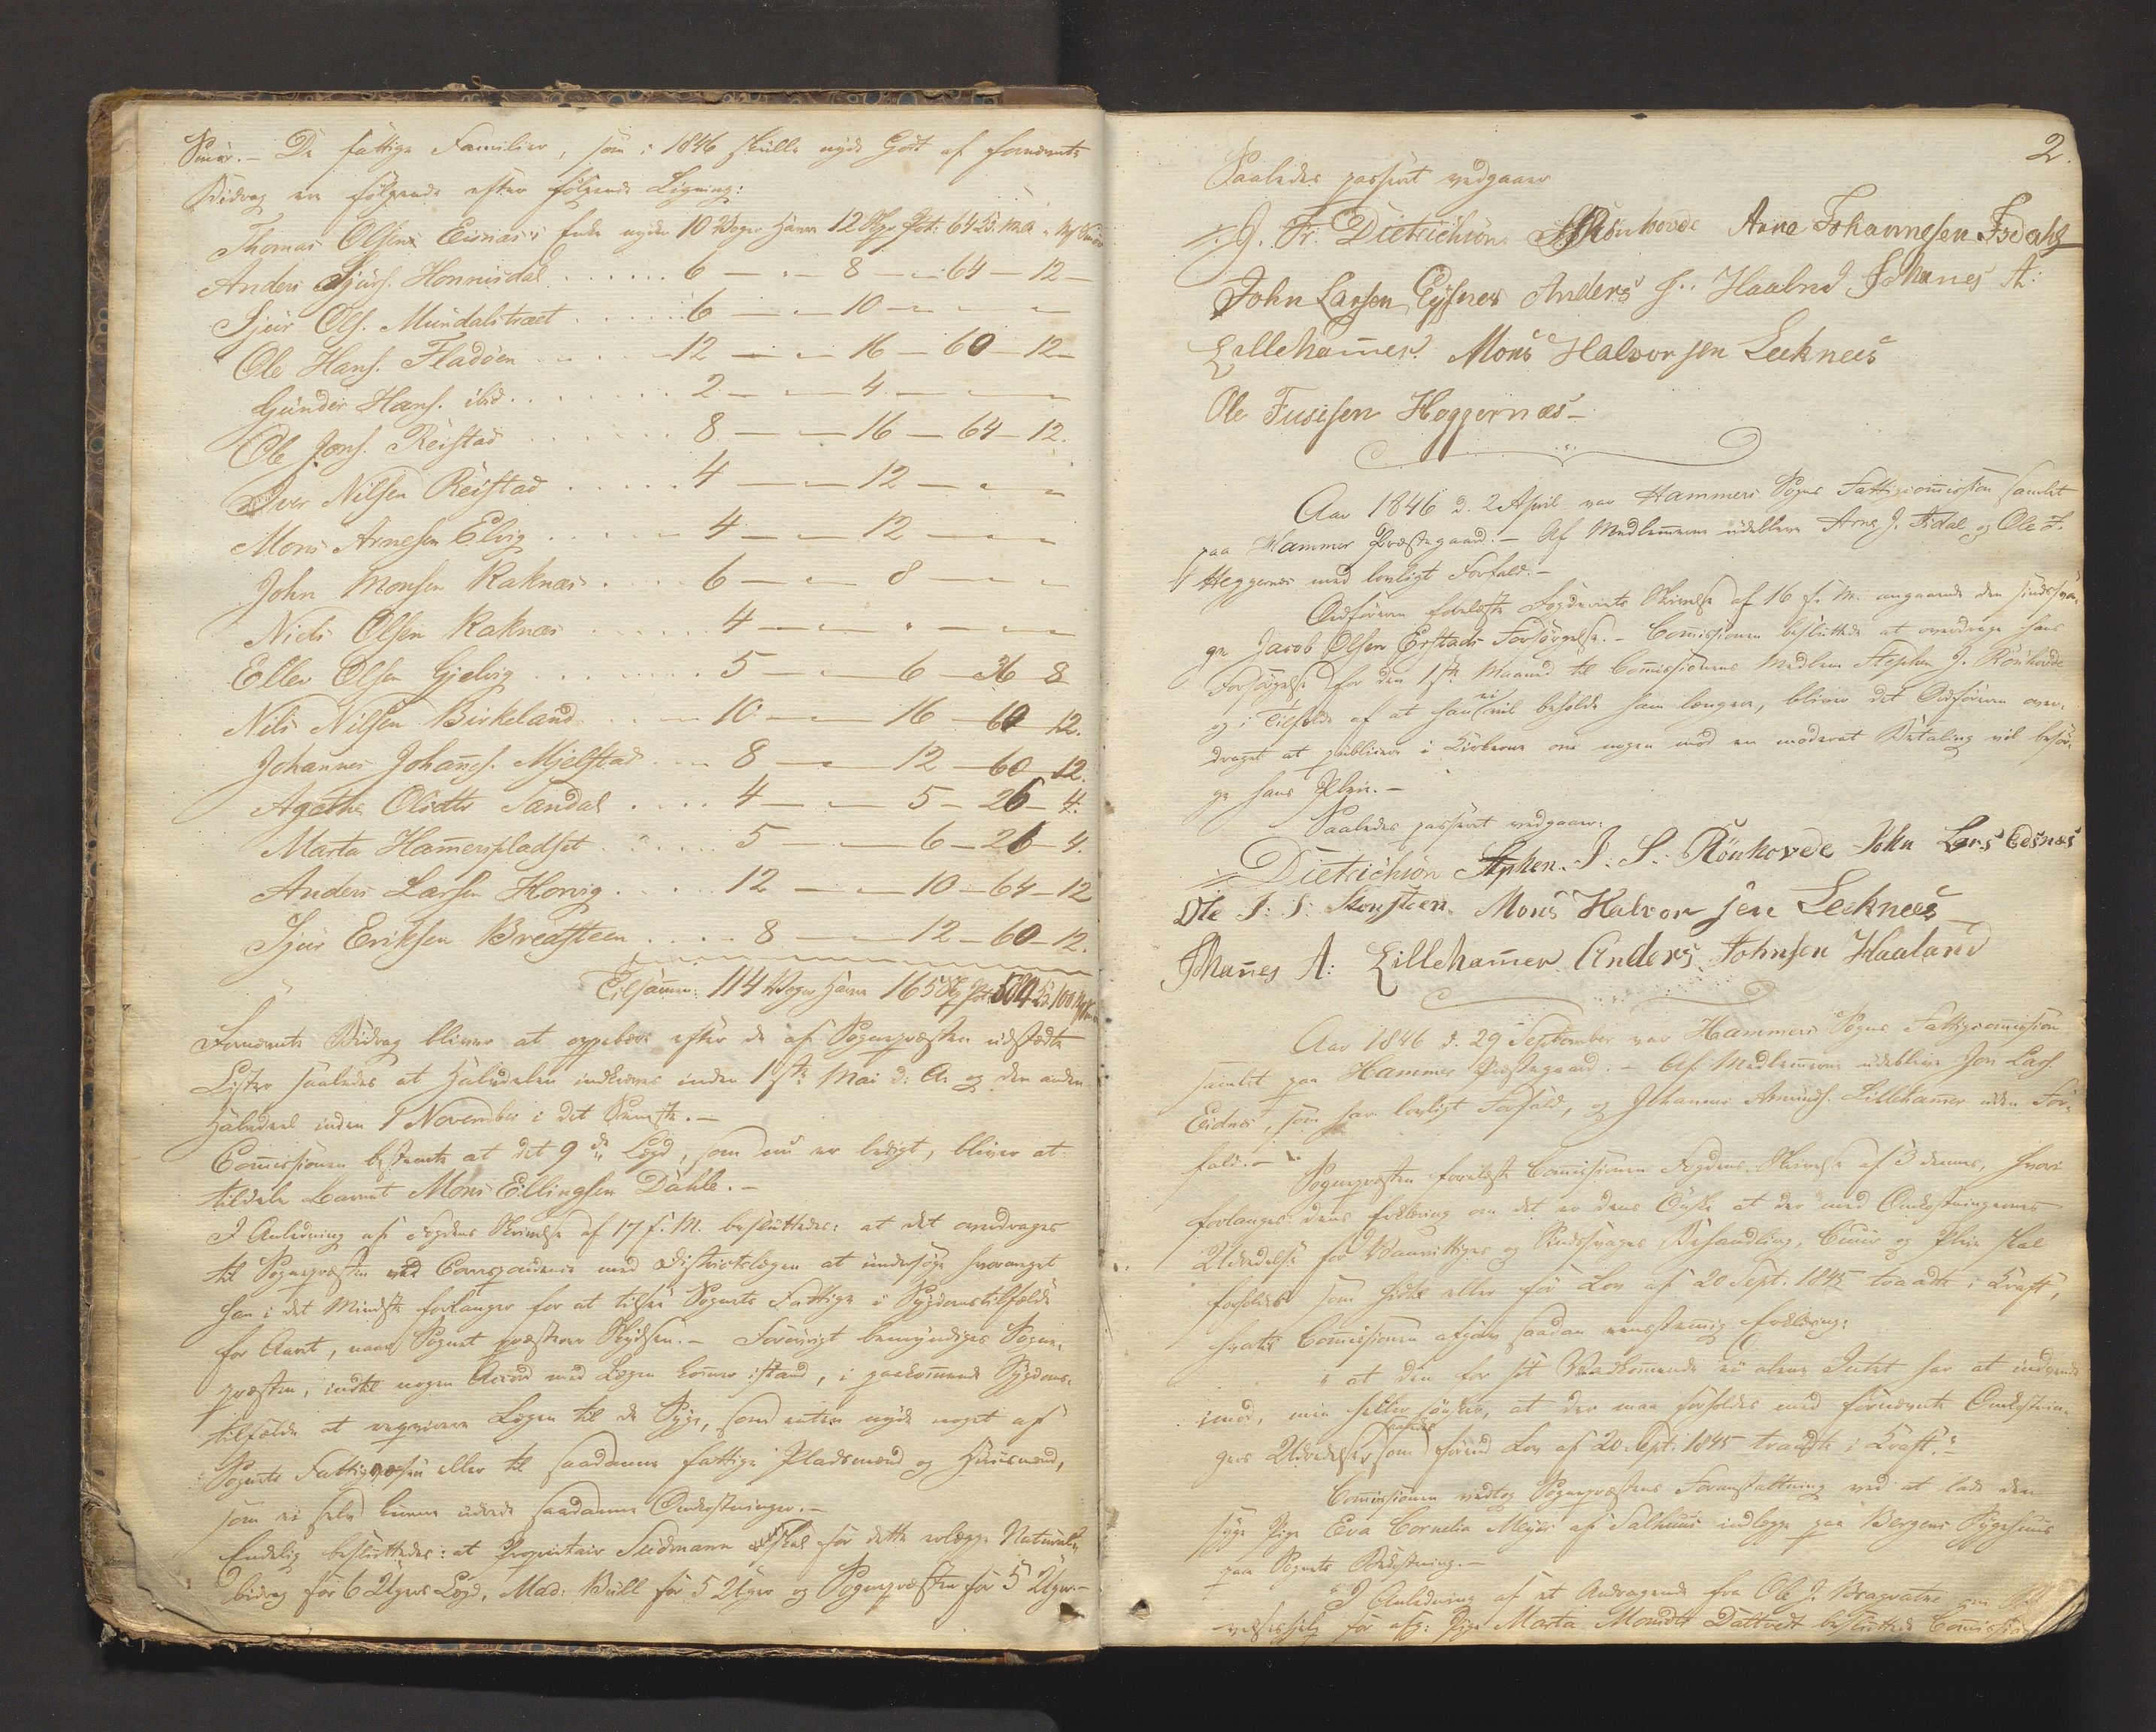 Smör. – De fattige Familier, som i 1846 skulle nyde Godt af fornævnte
Bidrag ere følgende efter følgende Ligning:
Thomas Olsens Eisnæs's Enke nyder 10 Voger Havre 12 Skpr Pot: 64
Anders Sjurs. Honnisdal . . . . . . 6 — „ — 8 — „ — 64 — 12 —
Sjur Ols. Mundalstræet . . . . . . 6 — „ — 10 — „ — „
Ole Hans. Fladöen . . . . . 12 — „ — 16 — 60 — 12 —
Gunder Hans. ibid. . . . . . . . 2 — „ — 4 — „ — „
Ole Jons. Reistad . . . . . . . 8 — „ — 16 — 64 — 12.
Iver Nilsen Reistad . . . . . . 4 — „ — 12 — „ — „
Mons Arnesen Elvig . . . . . . 4 — „ — 12 — „ — „
John Monsen Raknæs . . . . 6 — „ — 8 — „ — „
Niels Olsen Raknæs . . . . . 4 — „ — „ — „ — „
Eller Olsen Gjelvig . . . . . . . 5 — „ — 6 — 36 8
Nils Nilsen Birkeland . . . . 10 — „ — 16 — 60 — 12.
Johannes Johans. Mjelstad . . . 8 — „ — 12 — 60 — 12.
Agethe Olsdtr Tandal . . . . 4 — „ — 5 — 26 — 4.
Marta Hamerspladset . . . . . 5 — 6 — 26 — 4.
Anders Larsen Horvig . . . . 12 — „ — 10 — 64 — 12
Sjur Eriksen Bredsteen . . . . 8 — „ — 12 — 60 — 12.
Tilsamen: 114 Voger Havre 165 Skpr Pot:
Fornævnte Bidrag bliver at oppebære efter de af Sognepræsten udstædte
Lister saaledes at Halvdelen indleveres inden 1ste Mai d: A. og den anden
Halvdeel inden 1 November i det Seneste. –
Comissionen bestemte at det 9de Lægd, som nu er ledigt, bliver at
tildele Barnet Mons Ellingsen Dahle. –
I Anledning af Fogdens Skrivelse af 17 f. M. besluttedes: at det overdrages
til Sognepræsten ved Correspondence med Districtslægen at undersøge hvormeget
han i det Mindste forlanger for at tilsee Sognets Fattige i Sygdomstilfælde
for Aaret, naar Sognet præsterer Skydsen. – Forøvrigt bemyndiges Sogne-
præsten, indtil nogen Accord med Lægen kommer istand, i paakommende Sygdoms-
tilfælde at reqvirere Lægen til de Syge, som enten nyde noget af
Sognets Fattigvæsen eller til saadanne fattige Pladsmænd og Huusmænd,
som ei selv kunne udrede saadanne Omkostninger. –
Endelig besluttedes: at Proprietair Seidmann skal for dette erlægge Natural-
bidrag for 6 Ugers Lægd, Mad: Bull for 5 Uger og Sognepræsten for 5 Uger. –
2.
Saaledes passeret vedgaaer
J. Fr. Dietrichson Rönhovde Arne Johannesen Isdahl
John Larsen Eysnes Anders J. Haaland Johanes A:
Lillehamer. Mons Halvorsen Lecknees
Ole Fusisen Heggernæs –
Aar 1846 d. 2 April var Hammers Sogns Fattigcomission samlet
paa Hammer Præstegaard. – Af Medlemerne udeblive Arne J. Isdal og Ole F.
Heggernæs med lovligt Forfald. –
Ordføreren forelæste Fogderiets Skrivelse af 16 f. M. angaaende den sindssva-
ge Jacob Olsen Erstads Forsørgelse. – Comissionen besluttede at overdrage hans
Forsørgelse for den 1ste Maaned til Comissionens Medlem Stephen J. Rönhovde
og i Tilfælde af at han ei vil beholde ham længere, bliver det Ordføreren over-
draget at publicere i Kirkerne om nogen mod en moderat Betaling vil besør-
ge hans Pleie. –
Saaledes passeret vedgaaer:
Dietrichson Stephen J. S. Rönhovede John Lars Eednæs
Ole J: J: Mons Halvorsen Lecknees
Johanes A: Lillehamer Anders Johnsen Haaland
Aar 1846 d. 29 September var Hammers Sogns Fattigcomission
samlet paa Hammer Præstegaard. – Af Medlemerne udeblive Jon Lars.
Eidnes, som har lovligt Forfald, og Johannes Amunds. Lillehamer uden For-
fald. –
Sognepræsten forelæste Comissionen Fogdens Skrivelse af 3 dennes, hvori
forlanges dens Erklæring om det er dens Ønske at der med Omkostningernes
Udredelse for Vanvittiges og Sindssvages Behandling, Cuur og Pleie skal
forholdes som hidtil eller før Lov af 20 Sept. 1845 traadte i Kraft,
hvortil Comissionen afgav saadan eenstemig Erklæring:
„at den for sit Vedkomende ei alene Intet har at indvende
imod, men heller ønsker, at der maa forholdes med fornævnte Omkostnin-
gers Udredelse som forend Lov af 20. Sept. 1845 traadte i Kraft.“
Comissionen vedtog Sognepræstens Foranstaltning ved at lade den
syge Pige Eva Cornelia Meyer af Salhuus indlægge paa Bergens Sygehuus
paa Sognets Bekostning. –
I Anledning af et Andragende fra Ole J. Bragvatne om
for afg: Pige Marta Monsdtr Dattvedt besluttede Comissio